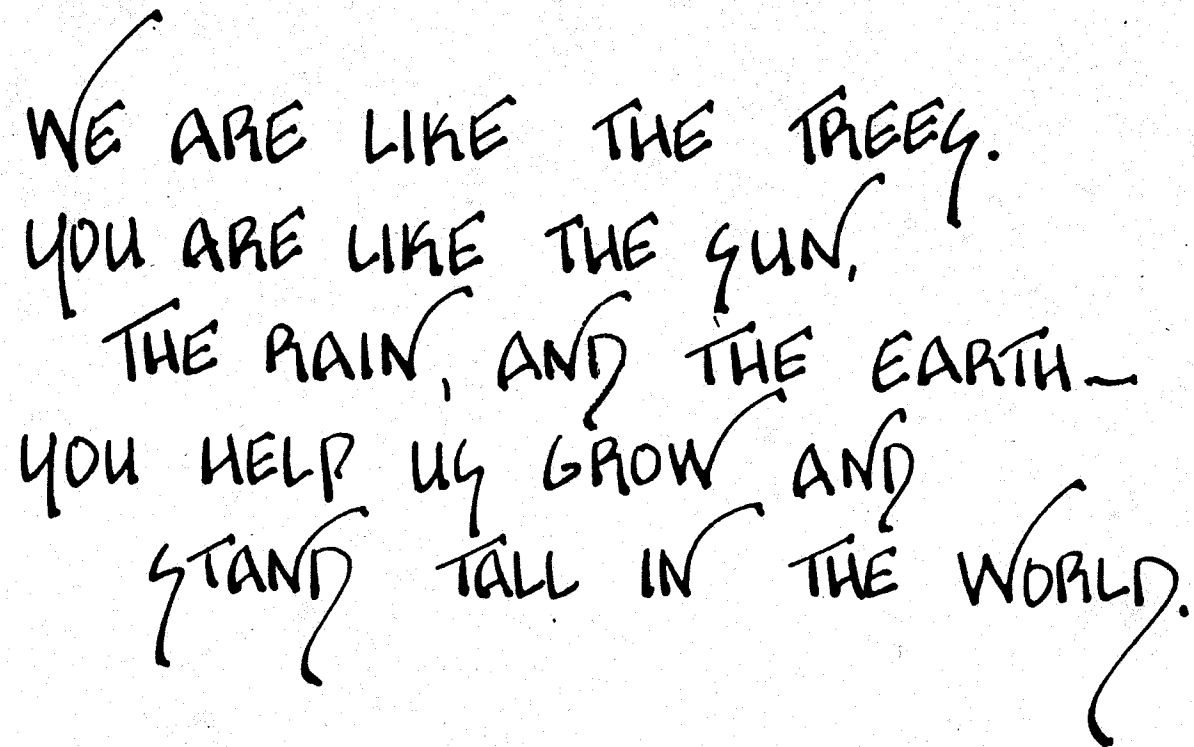 WE ARE LIKE THE TREES.
YOU ARE LIKE THE SUN,
THE RAIN, AND THE EARTH—
YOU HELP US GROW AND
STAND TALL IN THE WORLD.